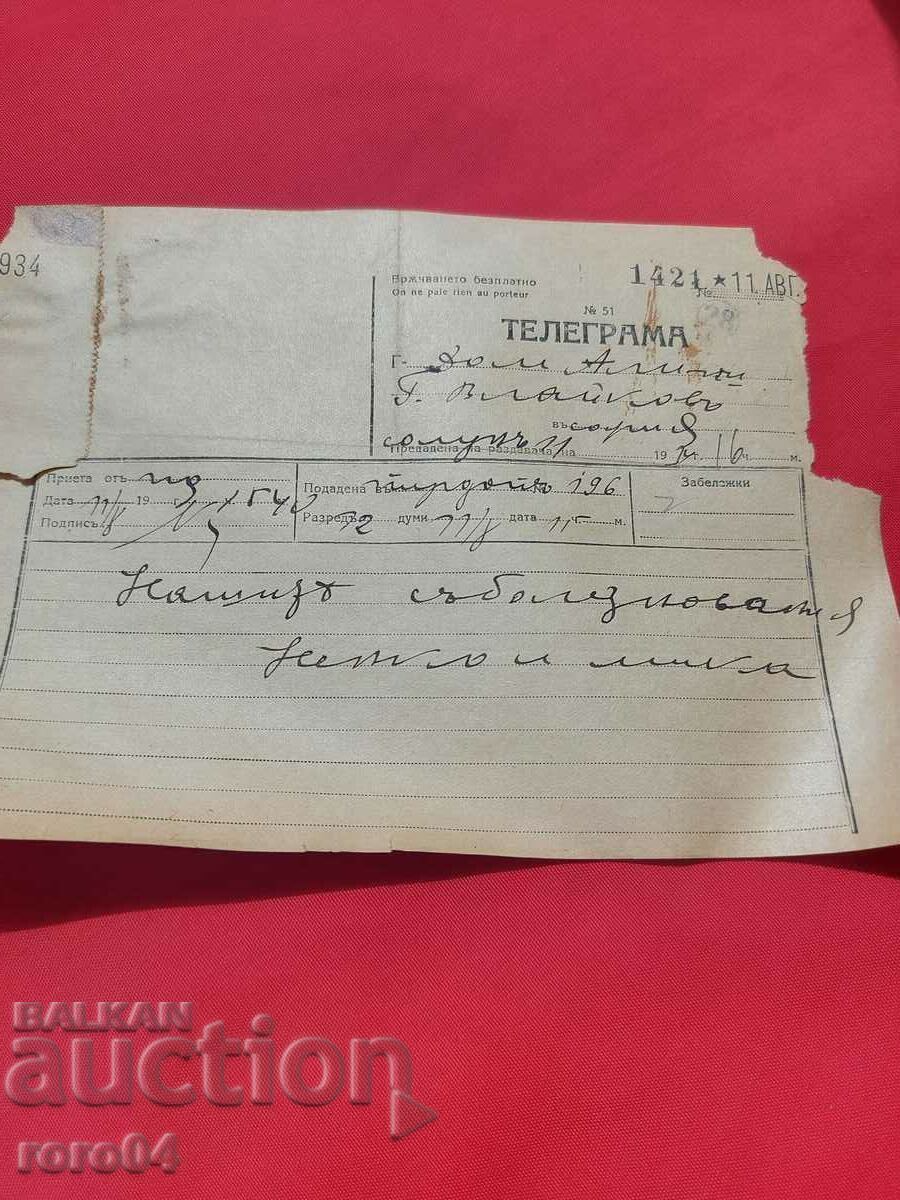 934
Врѫчването безплатно
On ne paie rien au porteur
1421 ★ 11. АВГ.
№
№ 51
ТЕЛЕГРАМА
Г-
Г. Влайковъ
въ София
солунъ 11
Предадена на раздавача на 19 34 г. 16 ч. м.
Приета отъ
Дата 11/8 19 г.
Подписъ
Подадена въ Пирдопъ 196
Разредъ 12 думи 11/8 дата 11 ч. м.
Забележки
Нашитѣ съболезнования
и мика
BALKAN
auction
roro04